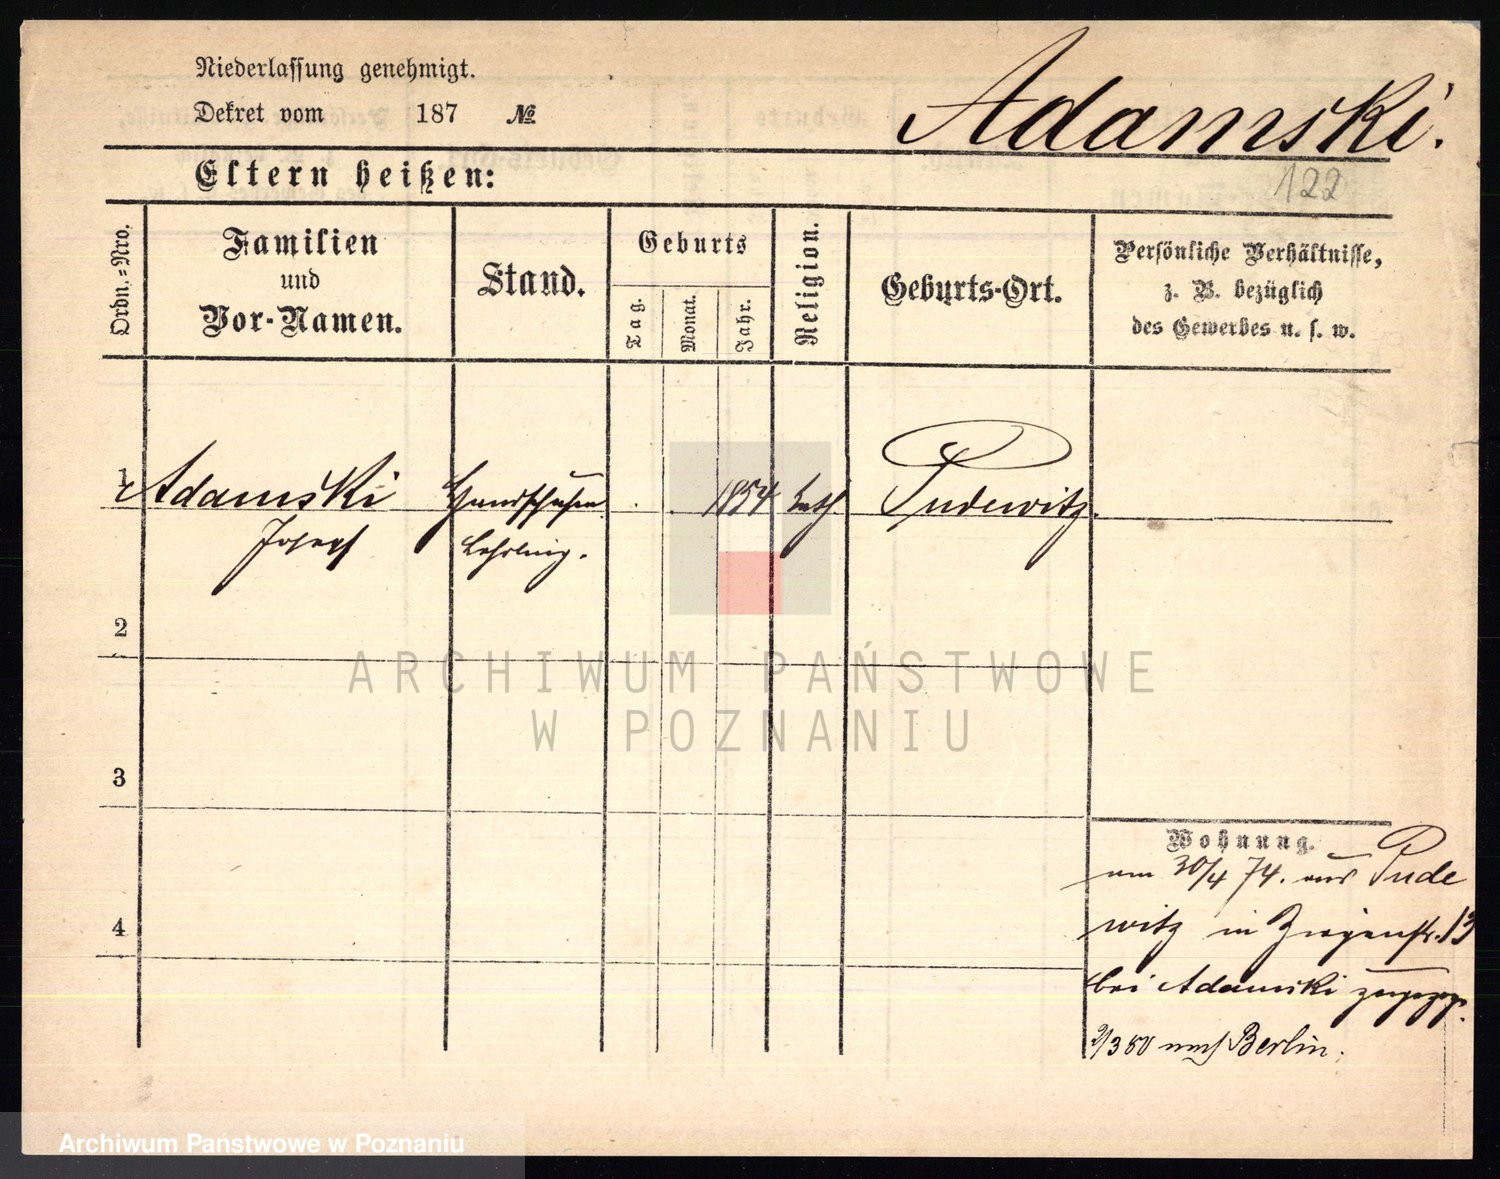 Niederlassung genehmigt.
Dekret vom 187 №
Adamski.
Eltern heißen:
122
Ordn.=Nro.
Familien
und
Vor-Namen.
Stand.
Geburts
Tag.
Monat.
Jahr.
Religion.
Geburts-Ort.
Persönliche Verhältnisse,
z. B. bezüglich
des Gewerbes u. s. w.
1 Adamski 1854 kath Pudewitz.
Josef Lehrling.
2
3
4
Wohnung.
am 30/4 74. aus Pude
witz in Ziegenstr. 13
bei Adamski
2/3 80 nach Berlin.
ARCHIWUM PAŃSTWOWE
W POZNANIU
Archiwum Państwowe w Poznaniu